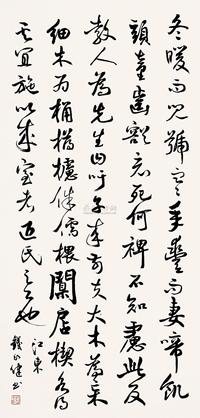 冬暖而兒號寒年豐而妻啼飢
頭童齒豁竟死何裨不知慮此反
教人為先生曰吁子來前夫大木為杗
細木為桷欂櫨侏儒椳闑扂楔各得
其宜施以成室者匠氏之工也
江東
健書